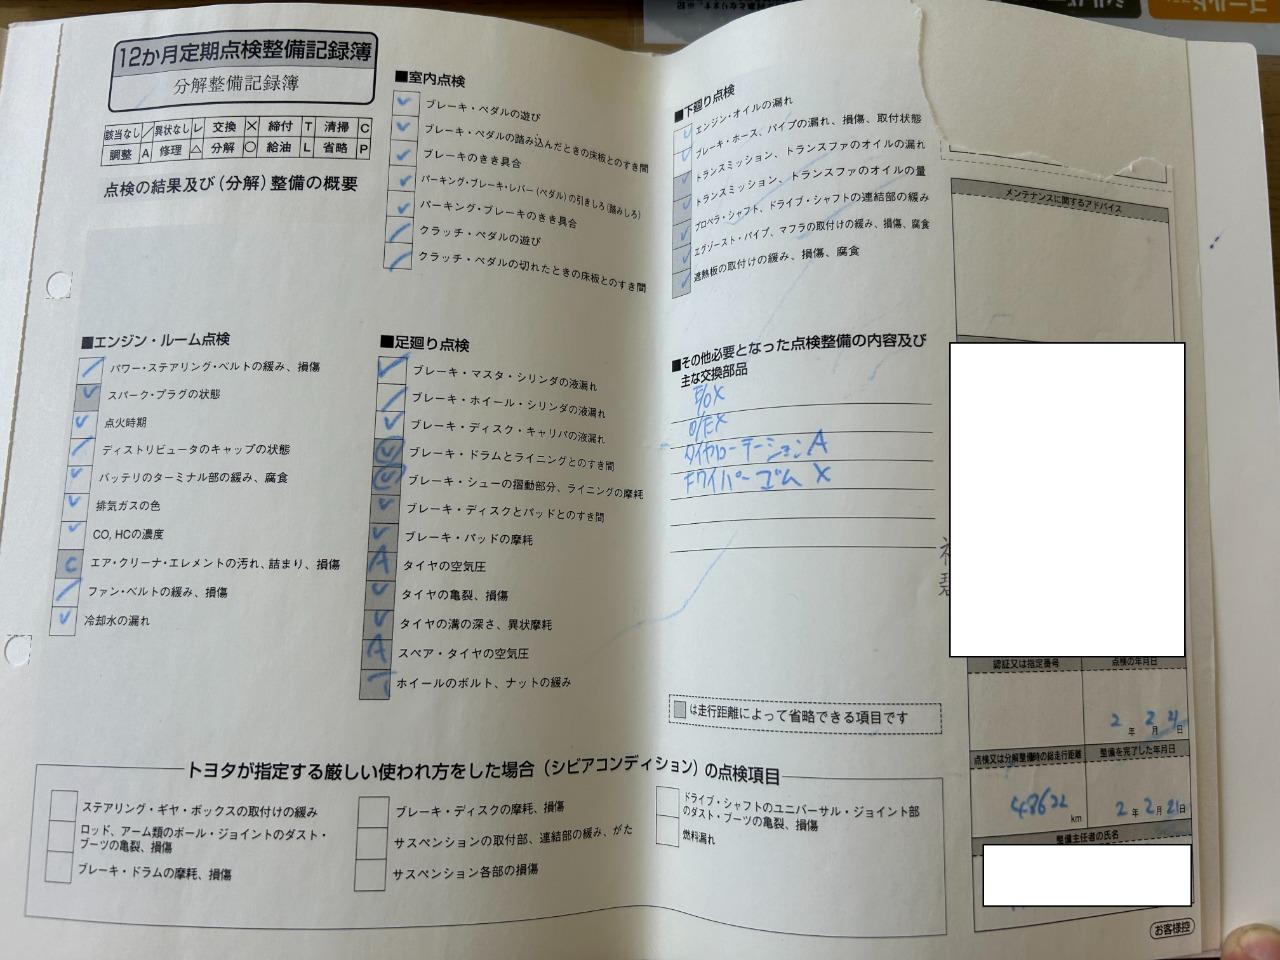 12か月定期点検整備記録簿
分解整備記録簿
該当なし / 異状なし レ 交換 × 締付 T 清掃 C
調整 A 修理 △ 分解 ○ 給油 L 省略 P
点検の結果及び(分解)整備の概要
■室内点検
レ ブレーキ・ペダルの遊び
レ ブレーキ・ペダルの踏み込んだときの床板とのすき間
レ ブレーキのきき具合
レ パーキング・ブレーキ・レバー(ペダル)の引きしろ(踏みしろ)
レ パーキング・ブレーキのきき具合
/ クラッチ・ペダルの遊び
/ クラッチ・ペダルの切れたときの床板とのすき間
■エンジン・ルーム点検
/ パワー・ステアリング・ベルトの緩み、損傷
レ スパーク・プラグの状態
レ 点火時期
/ ディストリビュータのキャップの状態
レ バッテリのターミナル部の緩み、腐食
レ 排気ガスの色
レ CO, HCの濃度
C エア・クリーナ・エレメントの汚れ、詰まり、損傷
/ ファン・ベルトの緩み、損傷
レ 冷却水の漏れ
■足廻り点検
レ ブレーキ・マスタ・シリンダの液漏れ
/ ブレーキ・ホイール・シリンダの液漏れ
レ ブレーキ・ディスク・キャリパの液漏れ
レ ブレーキ・ドラムとライニングとのすき間
レ ブレーキ・シューの摺動部分、ライニングの摩耗
レ ブレーキ・ディスクとパッドとのすき間
レ ブレーキ・パッドの摩耗
A タイヤの空気圧
レ タイヤの亀裂、損傷
レ タイヤの溝の深さ、異状摩耗
A スペア・タイヤの空気圧
T ホイールのボルト、ナットの緩み
■下廻り点検
レ エンジン・オイルの漏れ
レ ブレーキ・ホース、パイプの漏れ、損傷、取付状態
レ トランスミッション、トランスファのオイルの漏れ
レ トランスミッション、トランスファのオイルの量
レ プロペラ・シャフト、ドライブ・シャフトの連結部の緩み
レ エグゾースト・パイプ、マフラの取付けの緩み、損傷、腐食
レ 遮熱板の取付けの緩み、損傷、腐食
■その他必要となった点検整備の内容及び
主な交換部品
E/O X
O/E X
タイヤローテーション A
Fワイパーゴム X
は走行距離によって省略できる項目です
トヨタが指定する厳しい使われ方をした場合(シビアコンディション)の点検項目
ステアリング・ギヤ・ボックスの取付けの緩み
ロッド、アーム類のボール・ジョイントのダスト・
ブーツの亀裂、損傷
ブレーキ・ドラムの摩耗、損傷
ブレーキ・ディスクの摩耗、損傷
サスペンションの取付部、連結部の緩み、がた
サスペンション各部の損傷
ドライブ・シャフトのユニバーサル・ジョイント部
のダスト・ブーツの亀裂、損傷
燃料漏れ
メンテナンスに関するアドバイス
認証又は指定番号
点検の年月日
2年 2月 21日
点検又は分解整備時の総走行距離
48622 km
整備を完了した年月日
2年 2月 21日
整備主任者の氏名
お客様控